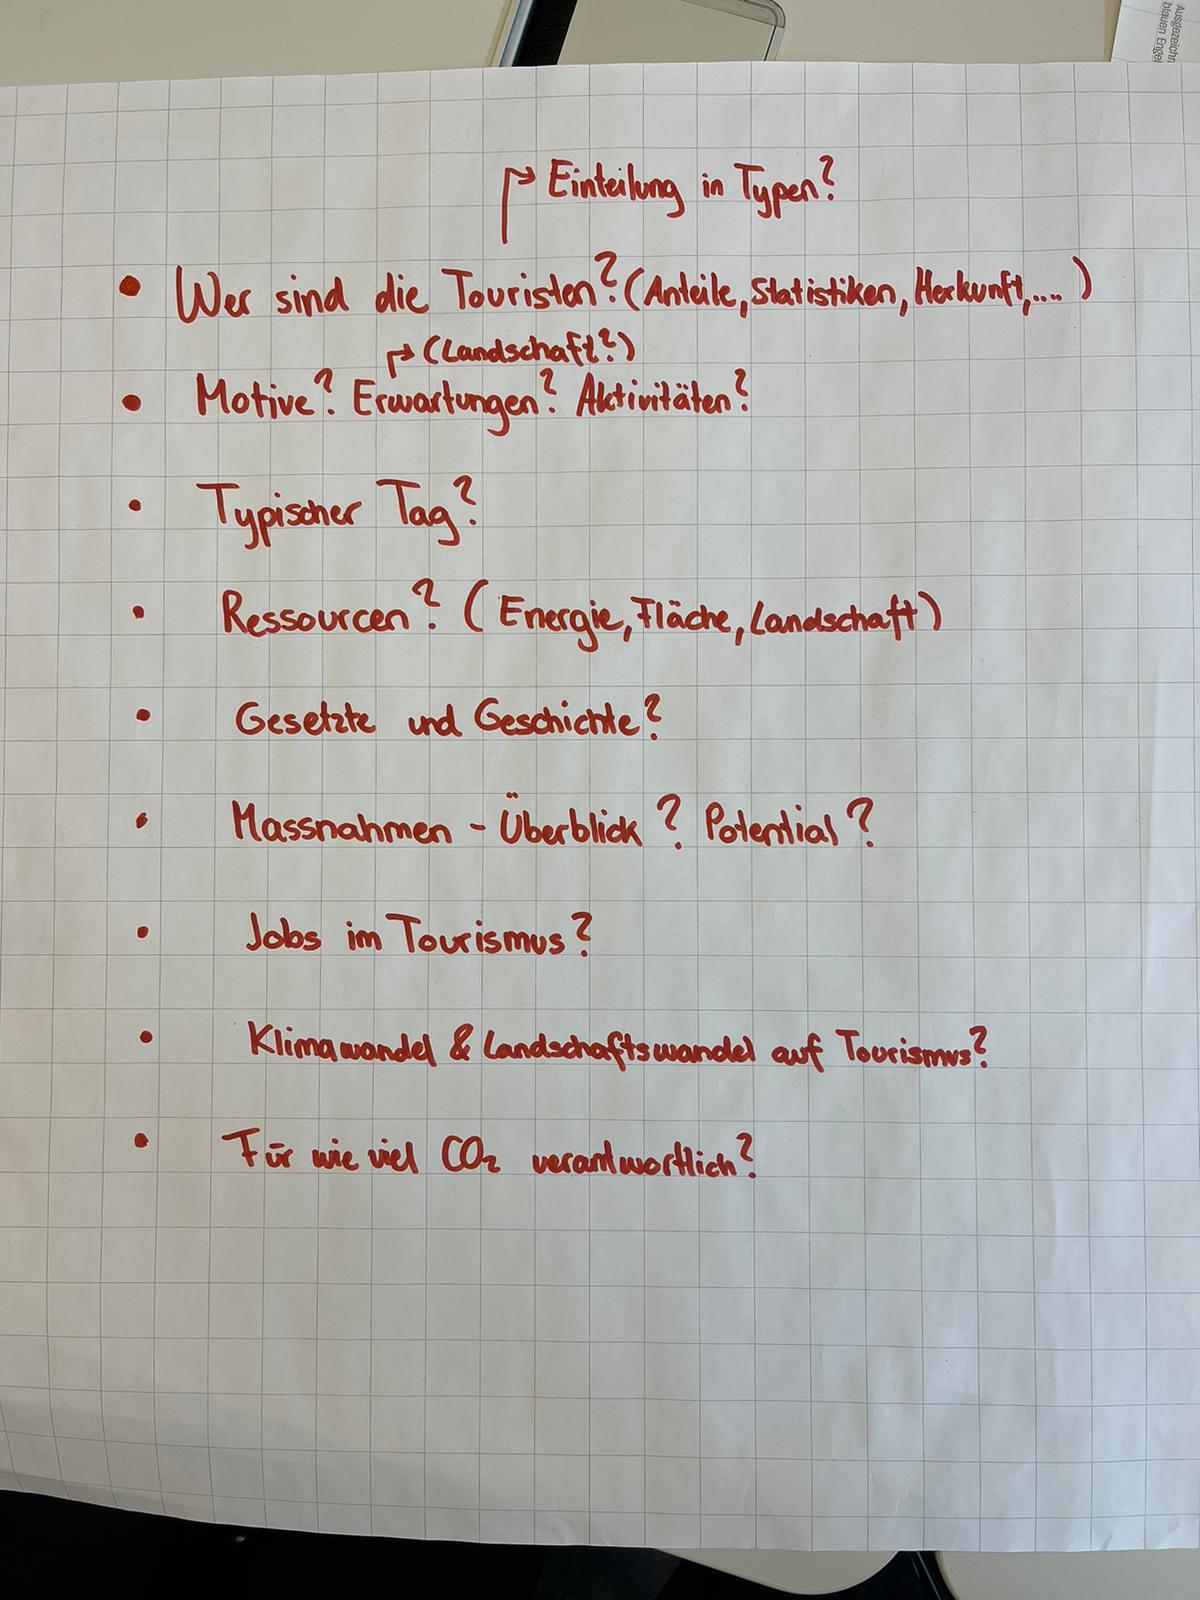 Ausgezeichn
blauen Engel
↱ Einteilung in Typen?
• Wer sind die Touristen? (Anteile, Statistiken, Herkunft, .... )
↱ (Landschaft?)
• Motive? Erwartungen? Aktivitäten?
• Typischer Tag?
• Ressourcen? (Energie, Fläche, Landschaft)
• Gesetzte und Geschichte?
• Massnahmen - Überblick? Potential?
• Jobs im Tourismus?
• Klimawandel & Landschaftswandel auf Tourismus?
• Für wie viel CO₂ verantwortlich?